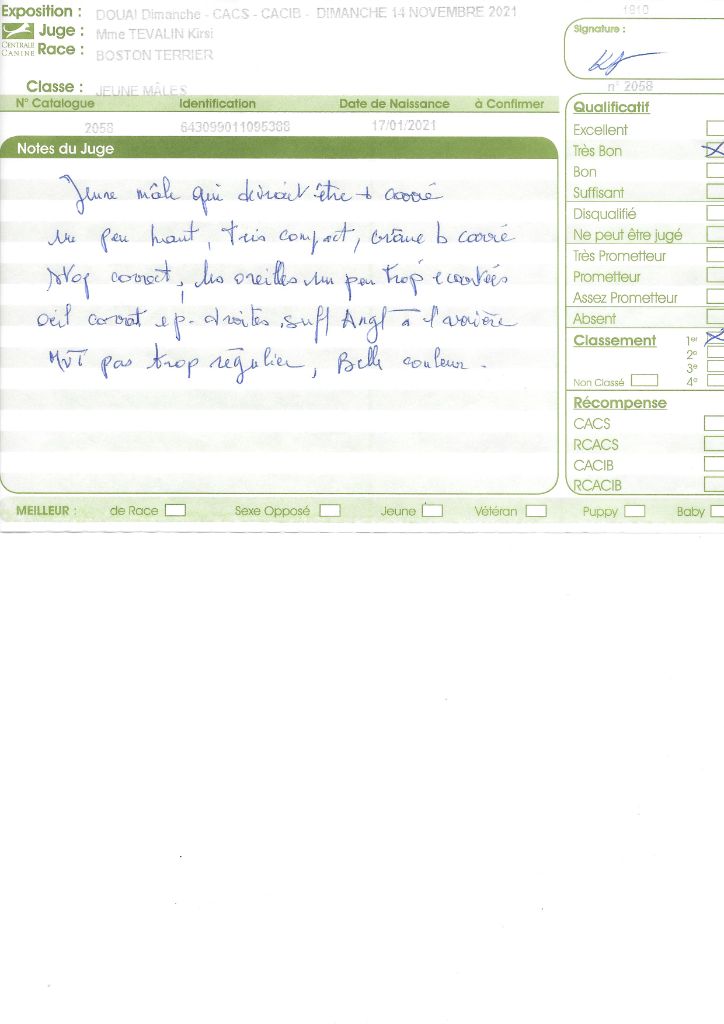 Exposition : DOUAI Dimanche - CACS - CACIB - DIMANCHE 14 NOVEMBRE 2021
1910
Juge : Mme TEVALIN Kirsi
Signature :
CENTRALE CANINE
Race : BOSTON TERRIER
Classe : JEUNE MÂLES
n° 2058
N° Catalogue Identification Date de Naissance à Confirmer
2058 643099011095388 17/01/2021
Notes du Juge
Jeune mâle qui devrait être + carré
un peu haut, très compact, crâne b carré
stop correct, les oreilles un peu trop écartées
oeil correct ep. droites, suff Angl à l'arrière
MVT pas trop régulier, Belle couleur.
Qualificatif
Excellent
Très Bon
Bon
Suffisant
Disqualifié
Ne peut être jugé
Très Prometteur
Prometteur
Assez Prometteur
Absent
Classement 1er
2e
3e
Non Classé 4e
Récompense
CACS
RCACS
CACIB
RCACIB
MEILLEUR : de Race Sexe Opposé Jeune Vétéran Puppy Baby